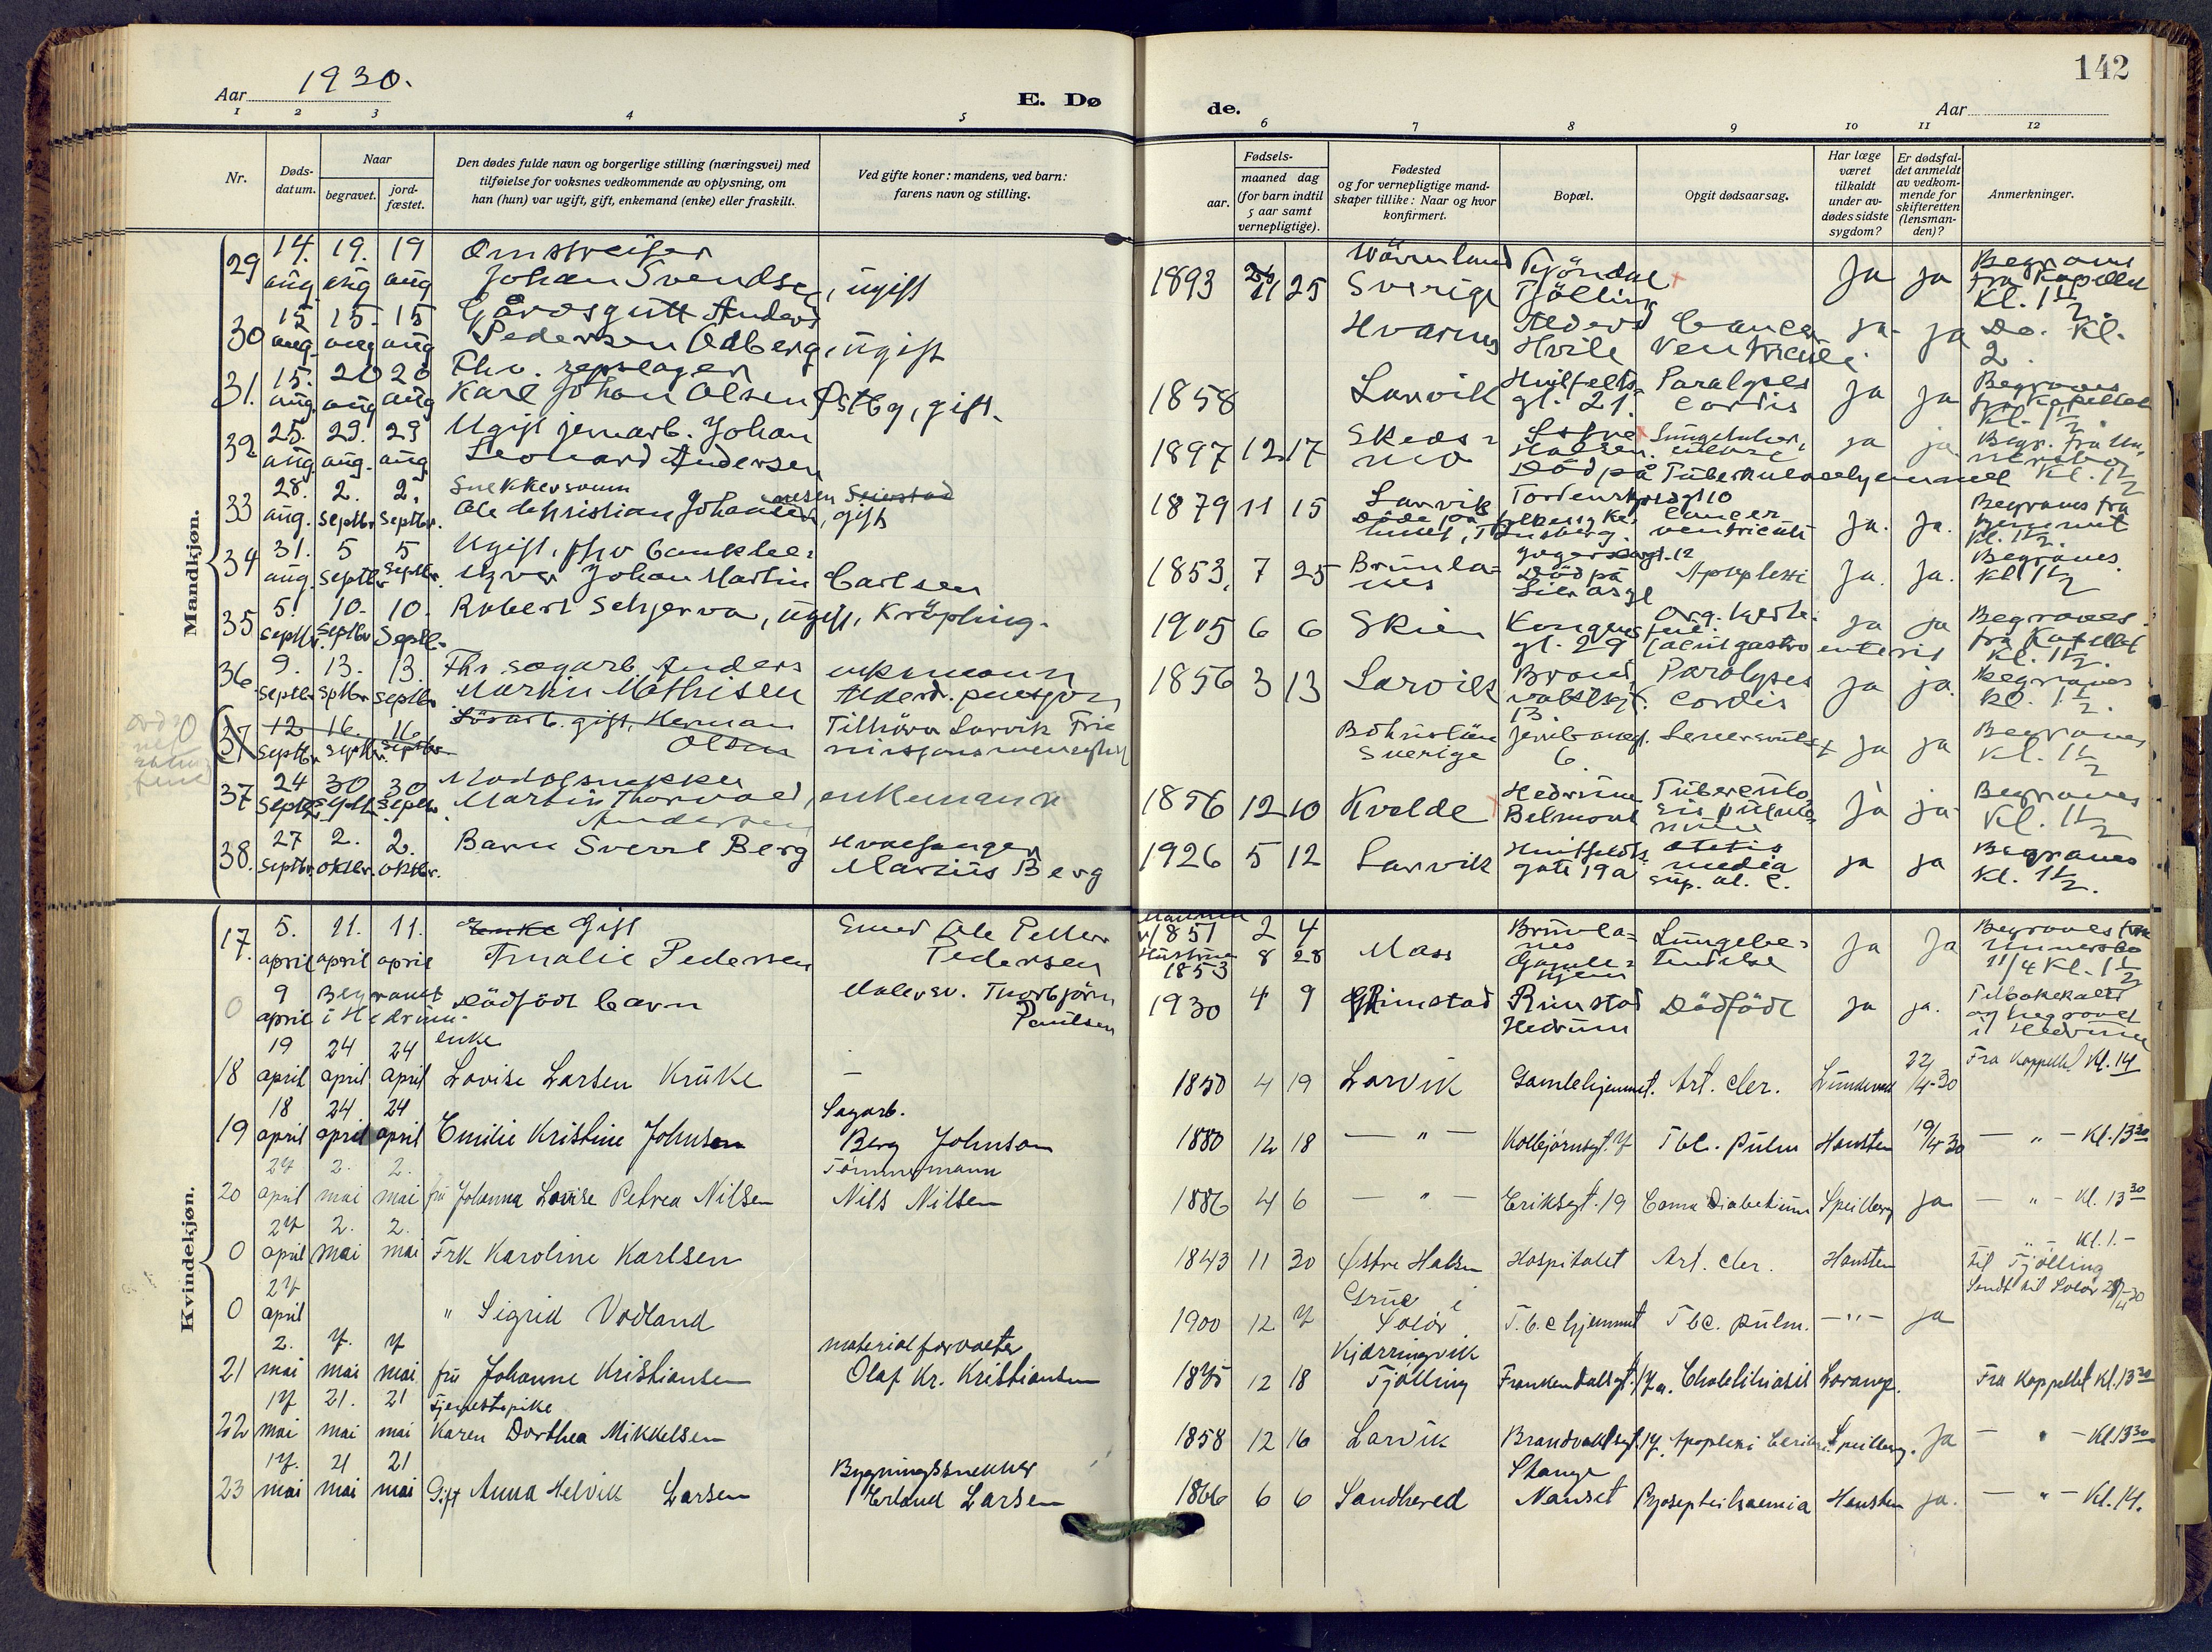 Aar 1930.
E. Dø
de.
Aar
142
1 2 3 4 5 6 7 8 9 10 11 12
Nr.
Døds-datum.
Naar
begravet.
jord-fæstet.
Den dødes fulde navn og borgerlige stilling (næringsvei) med
tilføielse for voksnes vedkommende av oplysning, om
han (hun) var ugift, gift, enkemand (enke) eller fraskilt.
Ved gifte koner: mandens, ved barn:
farens navn og stilling.
Fødsels-
aar.
maaned dag
(for barn indtil
5 aar samt
vernepligtige).
Fødested
og for vernepligtige mand-
skaper tillike: Naar og hvor
konfirmert.
Bopæl.
Opgit dødsaarsag.
Har læge
været
tilkaldt
under av-
dødes sidste
sygdom?
Er dødsfal-
det anmeldt
av vedkom-
mende for
skifteretten
(lensman-
den)?
Anmerkninger.
Mandkjøn.
29 14. aug 19. aug 19 aug Omstreifer Johan Svendsen, ugift 1893 11 25 Värmland Sverige Tjölling Ja ja Begraves fra Kapellet Kl. 1½
30 15 aug. 15. aug 15 aug Gårdsgutt Anders Pedersen Odberg, ugift Hvarnes Alders Hvile Cancer ventriculi ja ja Do. Kl. 2.
31. 15. aug. 20 aug 20 aug Fhv. repslager Karl Johan Olsen Østby, gift. 1858 Larvik Huitfelts gt. 21. Paralyses cordis ja ja Begraves fra Kapellet Kl. 1½.
32 25. aug 29. aug. 29 aug. Ugift jernarb. Johan Leonard Andersen 1897 12 17 Skedsmo Østre Halsen. Död på Tuberkulosehjemmet ja ja Begr. fra Kl. 1½
33 28. aug. 2. septbr 2. septbr. Snekkersvenn Ole Christian Johannesen, gift 1879 11 15 Larvik Tordenskjoldsgt 10 cancer ventriculi ja. ja. Begraves fra Kl. 1½.
34 31. aug. 5 septbr 5 septbr. Ugift, fhv bankbe- Johan Martin Carlsen 1853, 7 25 Brunlanes Død på Apoplexi ja. ja. Begraves Kl 1½
35 5. septbr. 10. septbr 10. septbr Robert Schjerva, ugift, Krøpling. 1905 6 6 Skien Kongens gt. 29 Org. hjerte- feil gastro enterit ja ja Begraves fra Kapellet Kl. 1½.
36 9. septbr 13. sptbr 13. septbr Fhv. sagarb. Anders Martin Mathisen enkemann Alderd. pensjon 1856 3 13 Larvik Brandvaktsgt. 13. Paralyses cordis ja ja. Begraves Kl. 1½.
37 12 septbr 16. septbr. 16. septbr Løsarb. gift, Herman Olsen Tilhører Larvik Frie Bohuslän Sverige 6 ja ja Begraves Kl. 1½
37 24 septbr. 30 septbr. 30 septbr. Modelsnekker Martin Thorvald Andersen, enkemann 1856 12 10 Kvelde Hedrum Belmont Tuberculosis pulmonum ja ja Begraves Kl. 1½
38. 27 septbr 2. oktbr. 2. oktbr. Barn Sverre Berg Hvalfanger Marius Berg 1926 5 12 Larvik Huitfeldts gate 19a otitis media sup. ac. ja ja Begraves Kl. 1½.
Kvindekjøn.
17. 5. april 11. april 11. april Enke Gift Amalie Pedersen Ole Petter Pedersen Mannen 1851 2 4 Hustruen 1853 8 28 Mass Brunlanes Gamlehjem Lungebetendelse ja ja Begraves fra 11/4 Kl. 1½
0 9 april Begravet i Hedrum. Dødfødt barn Malersv. Thorbjørn Paulsen 1930 4 9 Rimstad Rimstad Hedrum Dødfødt ja ja. Tilbakekalt og begravet i Hedrum
18 19 april 24 april 24 april enke Lovise Larsen Kruke — 1850 4 19 Larvik Gamlehjemmet. Art. scler. 22/4-30 Fra Kappellet Kl. 14
19 18 april 24 april 24 april Emilie Kristine Johnsen Sagarb. Berg Johnson 1880 12 18 — " — Kolbjørnsgt. 7 Tbc. pulm Hansten 19/4-30 — " — Kl. 13 30
20 27 april 2. mai 2. mai fru Johanna Lovise Petrea Nilsen Tømmermann Nils Nilsen 1886 4 6 — " — Eriksgt. 19 Coma Diabeticum Speilberg ja — " — Kl. 13 30
0 27 april 2. mai 2. mai Frk Karoline Karlsen 1843 11 30 Østre Halsen Hospitalet Art. scler. Hansten — " — Kl. 1. — til Tjølling
0 27 april " Sigrid Vodland 1900 12 7 Grue i Solør T.b.c hjemmet Tbc. pulm. — " — ja Sendt til Solør
21 2. mai 7. mai 7 mai fru Johanne Kristiansen materialforvalter Olaf Kr. Kristiansen 1875 12 18 Kjærringvik Tjølling Frankendalsgt. 17a. Cholelithiasis Fra Kappellet Kl. 13 30
22 17 mai 21. mai 21 mai Tjenestepike Karen Dorthea Mikkelsen 1858 12 16 Larvik Brandvaktsgt. 17. Apoplexi Speilberg. Ja — " — Kl. 13 30
23 17. mai 21 mai 21 mai Gift Anna Helvik Larsen Bygningssnekker Erland Larsen 1866 6 6 Sandhered Stange Nanset Hansten ja. — " — Kl. 14.